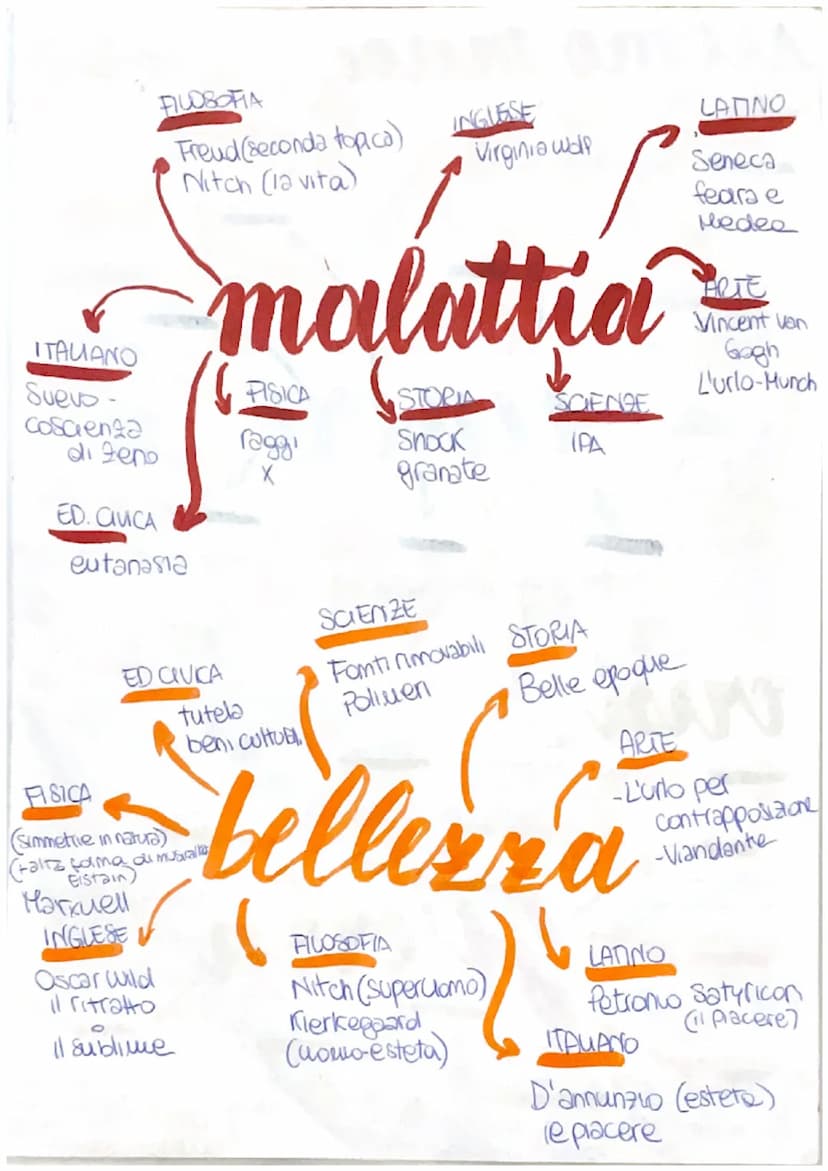 FILOSOFIA
Freud (seconda topica)
Nitch (la vita)
INGLESE
Virginia Wolf
LATINO
Seneca
fedra e
Medea
malattia
ARTE
Vincent van
Gogh
L'urlo-Munch
ITALIANO
Svevo -
coscienza
di Zeno
FISICA
raggi
X
STORIA
Shock
granate
SCIENZE
IPA
ED. CIVICA
eutanasia
SCIENZE
Fonti rinnovabili
Polimeri
STORIA
Belle epoque
ED CIVICA
tutela
beni culturali
ARTE
-L'urlo per
contrapposizione
-Viandante
bellezza
FISICA
(simmetrie in natura)
forma di
Eistain)
Maxwell
INGLESE
Oscar Wild
il ritratto
o
il sublime
FILOSOFIA
Nitch (superuomo)
Kierkegaard
(uomo-esteta)
LATINO
Petronio Satyricon
(il piacere)
ITALIANO
D'annunzio (esteta)
le piacere